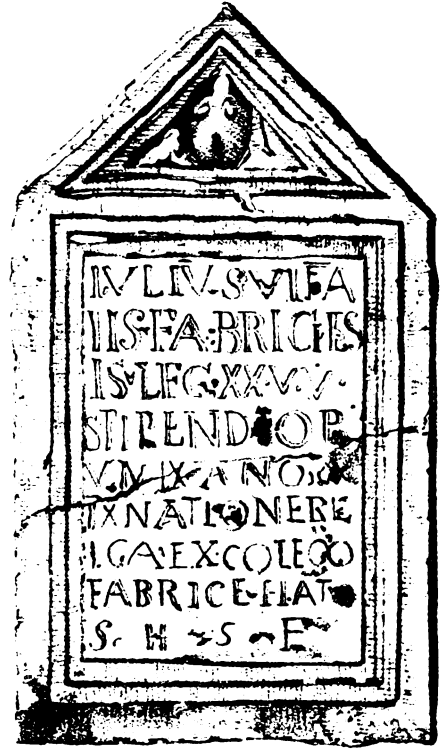 IVLIV·S VITA
LIS·FA·BRICIES
IS·LEG·XX·V·V·
STIPENDIOR
V·M IX·ANOR·X
IX NATIONE BE
LGA·EX·COLEGIO
FABRICE·ELAT
S· H · S · E